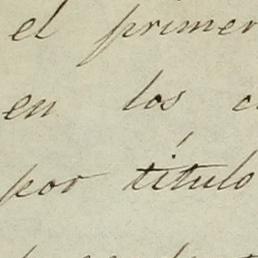 el primer
en los
por título